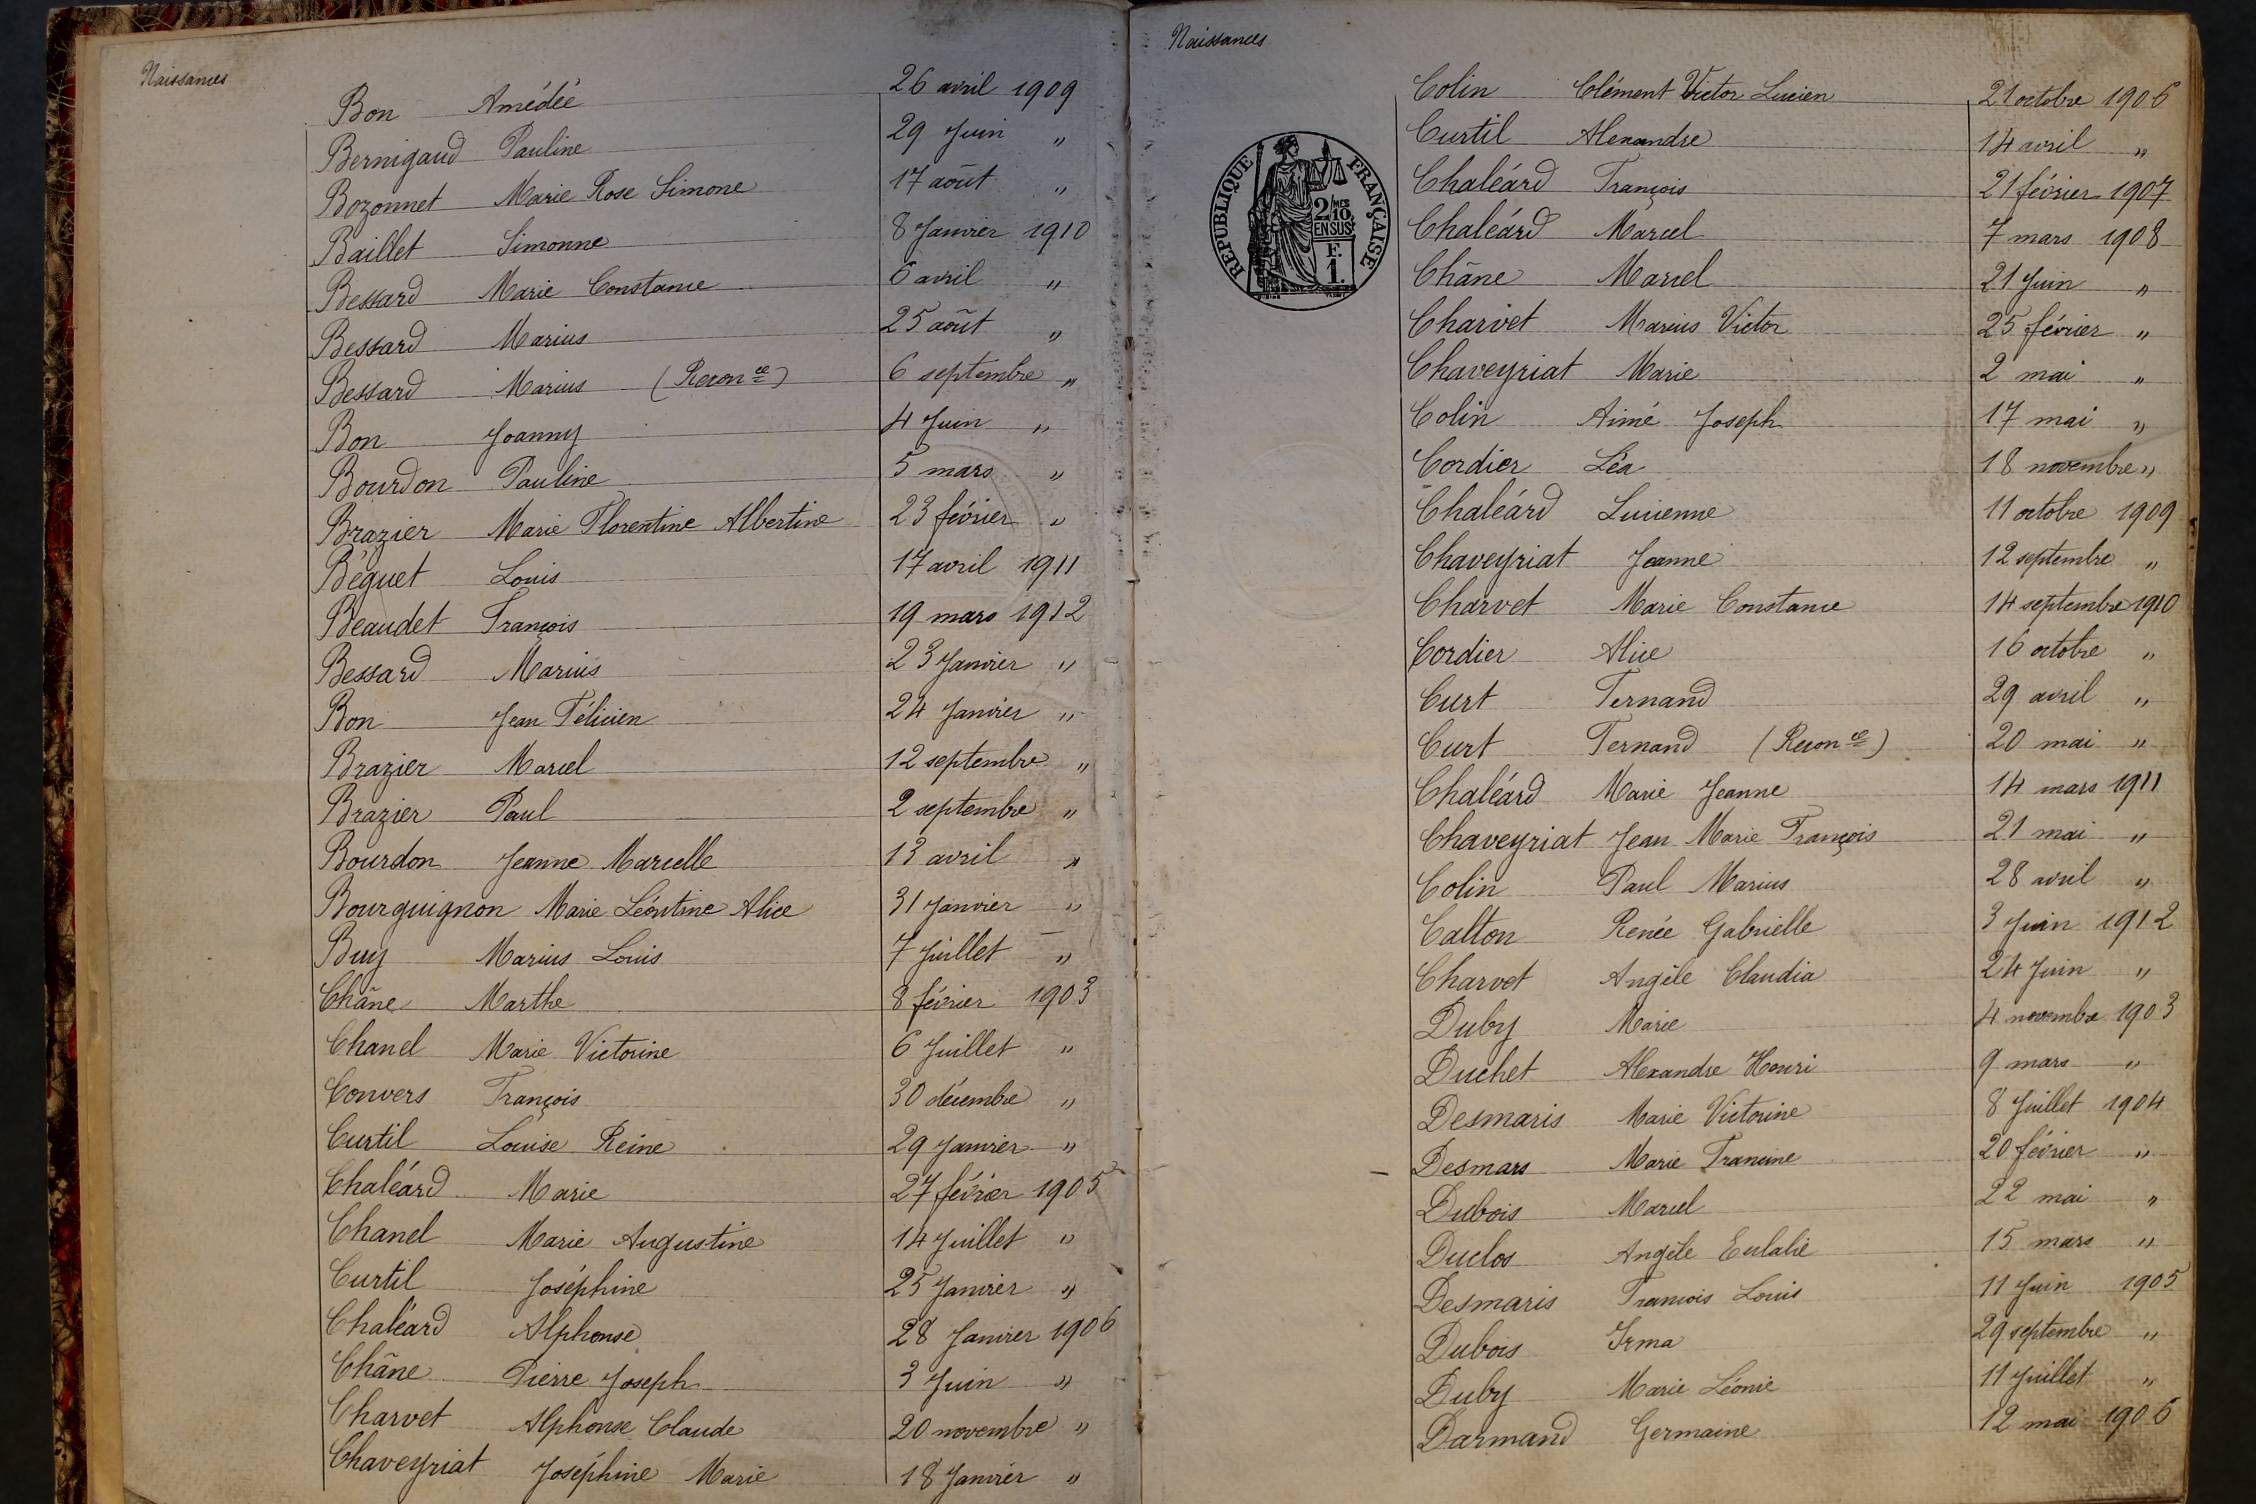 Naissances
Bon Amédée 26 avril 1909
Bernigaud Pauline 29 Juin "
Bozonnet Marie Rose Simone 17 août "
Baillet Simonne 8 Janvier 1910
Bessard Marie Constance 6 avril "
Bessard Marius 25 août "
Bessard Marius (Reconce) 6 septembre "
Bon Joanny 4 Juin "
Bourdon Pauline 5 mars "
Brazier Marie Florentine Albertine 23 février "
Béguet Louis 17 avril 1911
Beaudet François 19 mars 1912
Bessard Marius 23 Janvier "
Bon Jean Félicien 24 Janvier "
Brazier Marcel 12 septembre "
Brazier Paul 2 septembre "
Bourdon Jeanne Marcelle 13 avril "
Bourguignon Marie Léontine Alice 31 Janvier "
Buy Marius Louis 7 Juillet "
Châne Marthe 8 février 1903
Chanel Marie Victorine 6 Juillet "
Convers François 30 décembre "
Curtil Louise Reine 29 Janvier "
Chaléard Marie 27 février 1905
Chanel Marie Augustine 14 Juillet "
Curtil Joséphine 25 Janvier "
Chaléard Alphonse 28 Janvier 1906
Châne Pierre Joseph 3 Juin "
Charvet Alphonse Claude 20 novembre "
Chaveyriat Joséphine Marie 18 Janvier "
Naissances
REPUBLIQUE FRANÇAISE
2/10 MES
EN SUS
F.
1.
Colin Clément Victor Lucien 21 octobre 1906
Curtil Alexandre 14 avril "
Chaléard François 21 février 1907
Chaléard Marcel 7 mars 1908
Châne Marcel 21 Juin "
Charvet Marius Victor 25 février "
Chaveyriat Marie 2 mai "
Colin Aimé Joseph 17 mai "
Cordier Léa 18 novembre "
Chaléard Lucienne 11 octobre 1909
Chaveyriat Jeanne 12 septembre "
Charvet Marie Constance 14 septembre 1910
Cordier Alice 16 octobre "
Curt Fernand 29 avril "
Curt Fernand (Reconce) 20 mai "
Chaléard Marie Jeanne 14 mars 1911
Chaveyriat Jean Marie François 21 mai "
Colin Paul Marius 28 avril "
Catton Renée Gabrielle 3 Juin 1912
Charvet Angèle Claudia 24 Juin "
Duby Marie 4 novembre 1903
Duchet Alexandre Henri 9 mars "
Desmaris Marie Victorine 8 Juillet 1904
Desmars Marie Francine 20 février "
Dubois Marcel 22 mai "
Duclos Angèle Eulalie 15 mars "
Desmaris François Louis 11 Juin 1905
Dubois Irma 29 septembre "
Duby Marie Léonie 11 Juillet "
Darmand Germaine 12 mai 1906